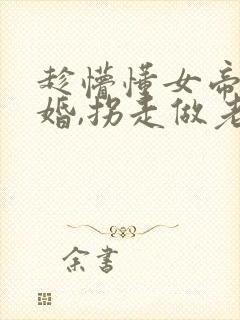 趁懵懂女帝
婚,拐走做老
余書